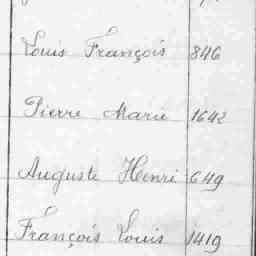 Louis François 846
Pierre Marie 1642
Auguste Henri 649
François Louis 1419